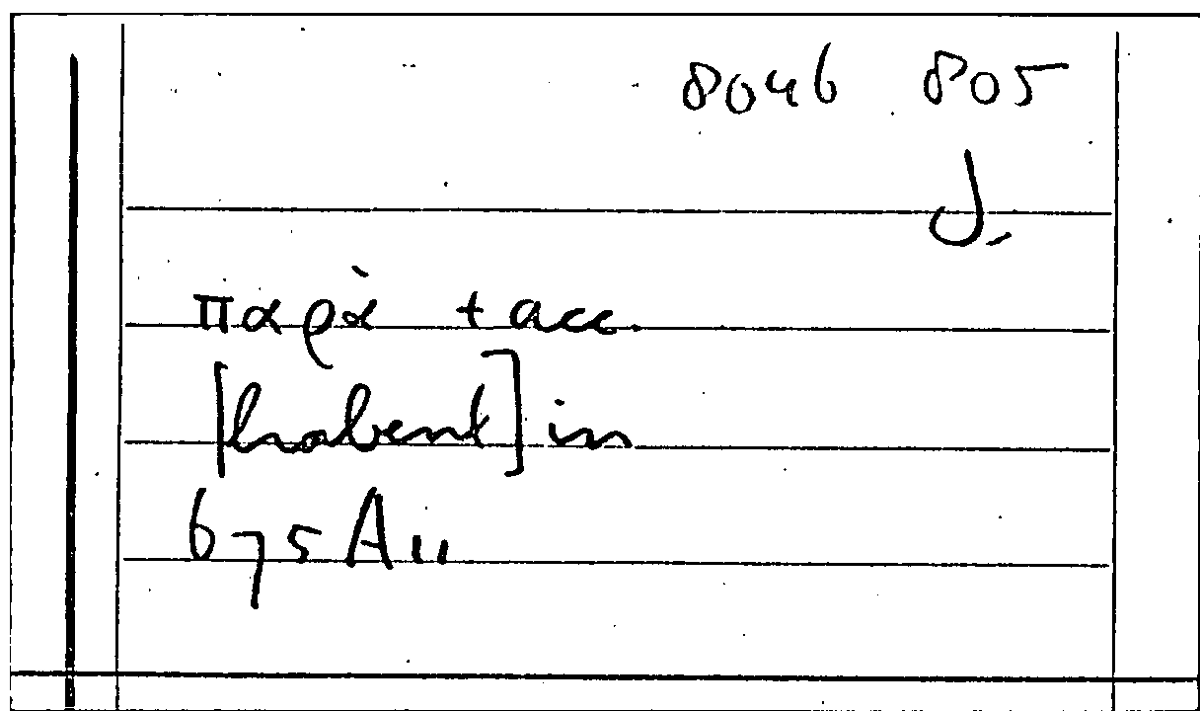 804b 805
J.
παρὰ + acc.
[habent] in
675A11